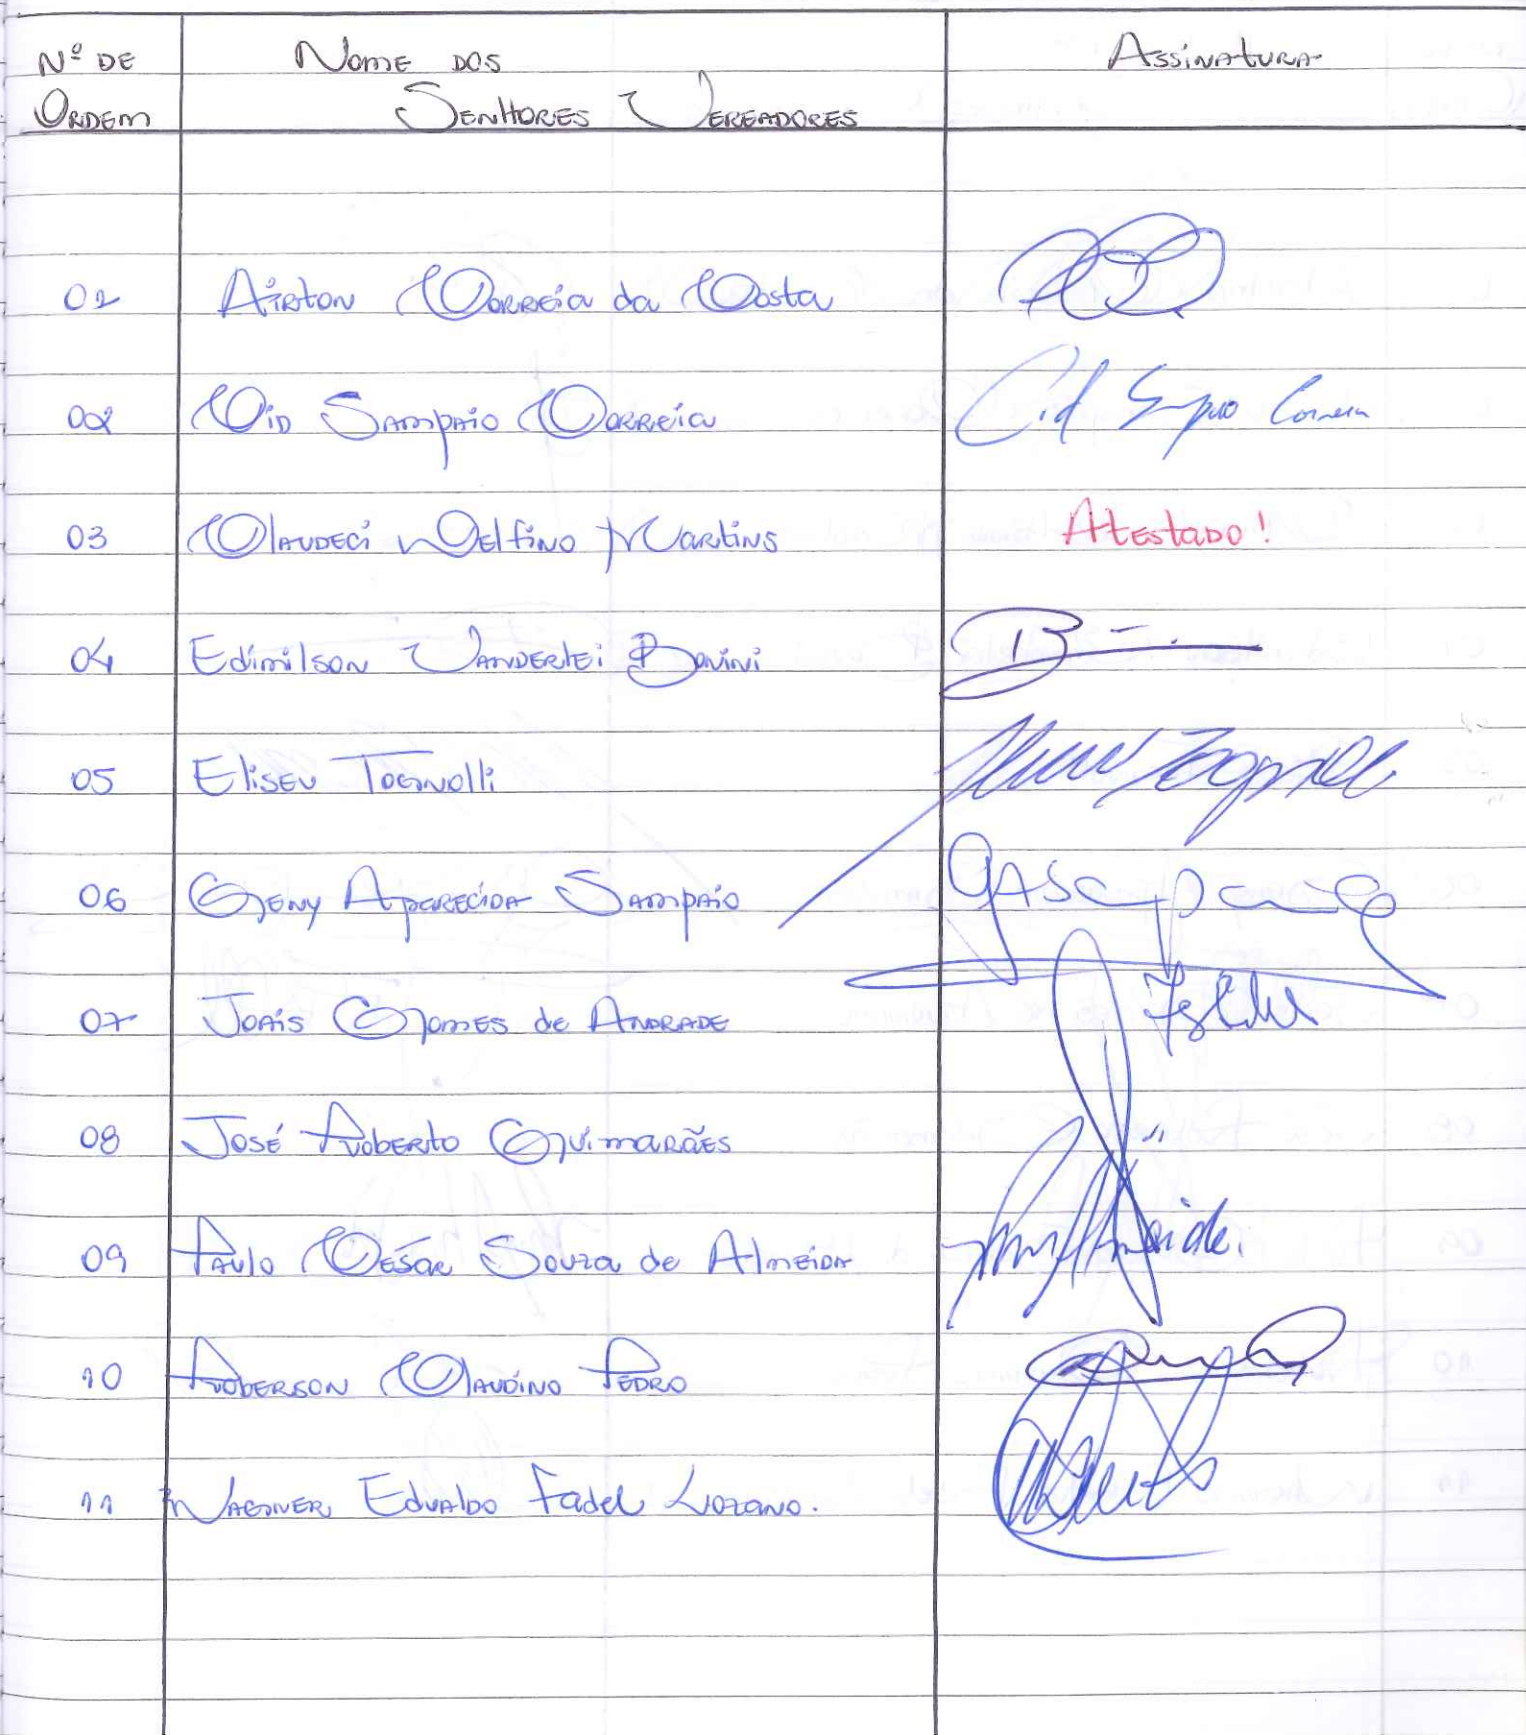 Nº DE Nome dos Assinatura
Ordem Senhores Vereadores
01 Airton Correia da Costa
02 Cid Sampaio Correia Cid Sampaio Correia
03 Claudeci Delfino Martins Atestado!
04 Edimilson Vanderlei Bonini
05 Eliseu Tognolli
06 Geny Aparecida Sampaio
07 Jonis Gomes de Andrade
08 José Roberto Guimarães
09 Paulo César Souza de Almeida
10 Roberson Claudino Pedro
11 Wagner Edvaldo Fadel Lozano.